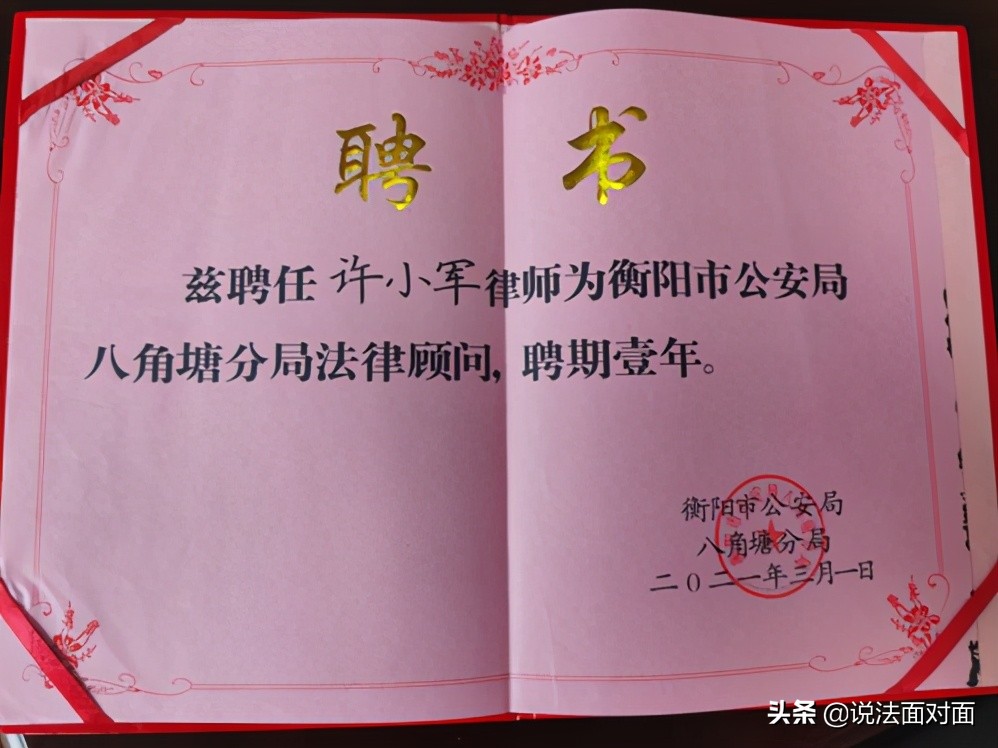 聘书
兹聘任 许小军 律师为衡阳市公安局
八角塘分局法律顾问，聘期壹年。
衡阳市公安局
八角塘分局
二0二一年三月一日
头条 @说法面对面